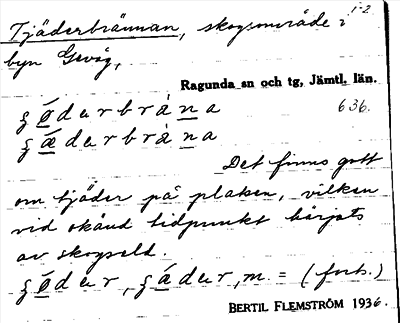 1-2
Tjäderbrännan, skogsområde i
byn Gevåg,
Ragunda sn och tg, Jämtl. län.
636.
Det finns gott
om tjäder på platsen, vilken
vid okänd tidpunkt härjats
av skogseld.
m. = (forts.)
BERTIL FLEMSTRÖM 1936.